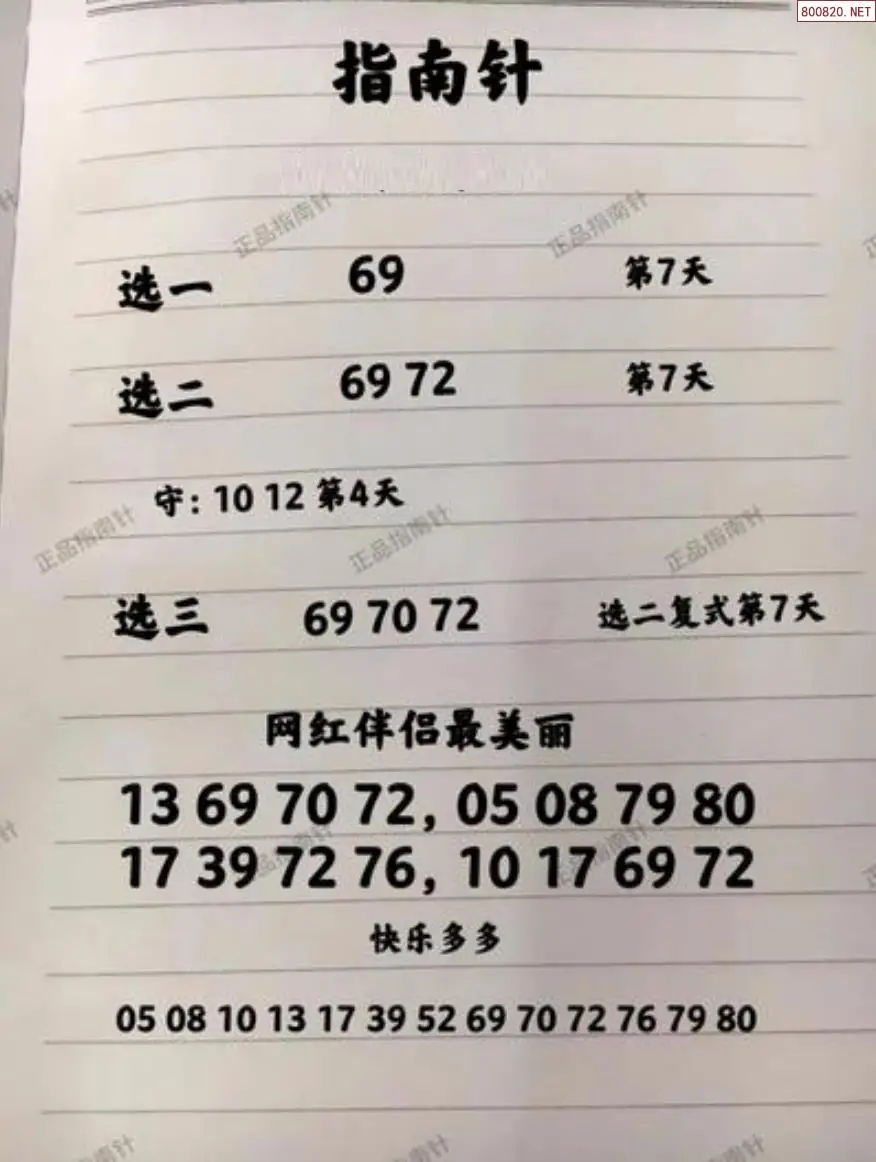 800820.NET
指南针
正品指南针 正品指南针
选一 69 第7天
选二 69 72 第7天
守: 10 12 第4天
正品指南针 正品指南针 正品指南针
选三 69 70 72 选二复式第7天
网红伴侣最美丽
13 69 70 72, 05 08 79 80
17 39 72 76, 10 17 69 72
快乐多多
05 08 10 13 17 39 52 69 70 72 76 79 80